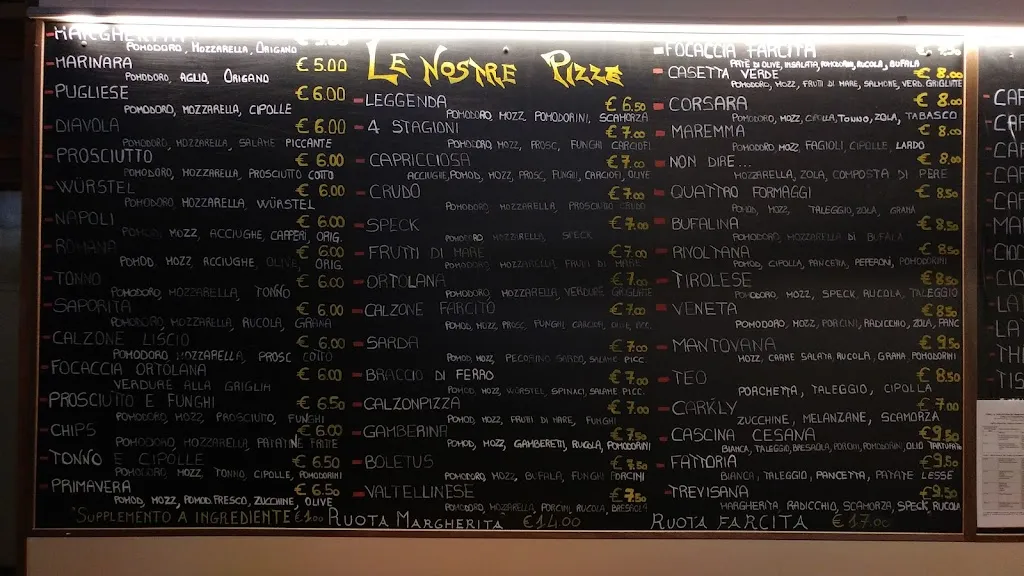 MARGHERITA
POMODORO, MOZZARELLA, ORIGANO
MARINARA € 5.00
POMODORO, AGLIO, ORIGANO
PUGLIESE € 6.00
POMODORO, MOZZARELLA, CIPOLLE
DIAVOLA € 6.00
POMODORO, MOZZARELLA, SALAME PICCANTE
PROSCIUTTO € 6.00
POMODORO, MOZZARELLA, PROSCIUTTO COTTO
WÜRSTEL € 6.00
POMODORO, MOZZARELLA, WÜRSTEL
NAPOLI € 6.00
POMOD, MOZZ, ACCIUGHE, CAPPERI, ORIG.
ROMANA € 6.00
POMOD, MOZZ, ACCIUGHE, OLIVE, ORIG.
TONNO € 6.00
POMODORO, MOZZARELLA, TONNO
SAPORITA € 6.00
POMODORO, MOZZARELLA, RUCOLA, GRANA
CALZONE LISCIO € 6.00
POMODORO, MOZZARELLA, PROSC COTTO
FOCACCIA ORTOLANA € 6.00
VERDURE ALLA GRIGLIA
PROSCIUTTO E FUNGHI € 6.50
POMODORO, MOZZ, PROSCIUTTO, FUNGHI
CHIPS € 6.00
POMODORO, MOZZARELLA, PATATINE FRITTE
TONNO E CIPOLLE € 6.50
POMODORO, MOZZ, TONNO, CIPOLLE, POMODORINI
PRIMAVERA € 6.50
POMOD, MOZZ, POMOD FRESCO, ZUCCHINE, OLIVE
*SUPPLEMENTO A INGREDIENTE €1.00
LE NOSTRE PIZZE
LEGGENDA € 6.50
POMODORO, MOZZ, POMODORINI, SCAMORZA
4 STAGIONI € 7.00
POMODORO, MOZZ, PROSC, FUNGHI CARCIOFI
CAPRICCIOSA € 7.00
ACCIUGHE, POMOD, MOZZ, PROSC, FUNGHI, CARCIOFI, OLIVE
CRUDO € 7.00
POMODORO, MOZZARELLA, PROSCIUTTO CRUDO
SPECK € 7.00
POMODORO MOZZARELLA, SPECK
FRUTTI DI MARE € 7.00
POMODORO, MOZZARELLA, FRUTTI DI MARE
ORTOLANA € 7.00
POMODORO, MOZZARELLA, VERDURE GRIGLIATE
CALZONE FARCITO € 7.00
POMOD, MOZZ, PROSC, FUNGHI, CARCIOFI, OLIVE, ACC.
SARDA € 7.00
POMOD, MOZZ, PECORINO SARDO, SALAME PICC.
BRACCIO DI FERRO € 7.00
POMOD, MOZZ, WÜRSTEL, SPINACI, SALAME PICC.
CALZONPIZZA € 7.00
POMOD, MOZZ, FRUTTI DI MARE, FUNGHI
GAMBERINA € 7.50
POMOD, MOZZ, GAMBERETTI, RUCOLA, POMODORINI
BOLETUS € 7.50
POMODORO, MOZZ, BUFALA, FUNGHI PORCINI
VALTELLINESE € 7.50
POMODORO, MOZZARELLA, PORCINI, RUCOLA, BRESAOLA
RUOTA MARGHERITA €14.00
FOCACCIA FARCITA € 7.50
PATÈ DI OLIVE, INSALATA, POMODORO, RUCOLA, BUFALA
CASETTA VERDE € 8.00
POMODORO, MOZZ, FRUTTI DI MARE, SALMONE, VERD. GRIGLIATE
CORSARA € 8.00
POMODORO, MOZZ, CIPOLLA, TONNO, ZOLA, TABASCO
MAREMMA € 8.00
POMODORO, MOZZ, FAGIOLI, CIPOLLE, LARDO
NON DIRE... € 8.00
MOZZARELLA, ZOLA, COMPOSTA DI PERE
QUATTRO FORMAGGI € 8.50
POMOD, MOZZ, TALEGGIO, ZOLA, GRANA
BUFALINA € 8.50
POMODORO, MOZZARELLA DI BUFALA
RIVOLTANA € 8.50
POMOD, CIPOLLA, PANCETTA, PEPERONI, POMODORINI
TIROLESE € 8.50
POMODORO, MOZZ, SPECK, RUCOLA, TALEGGIO
VENETA € 8.50
POMODORO, MOZZ, PORCINI, RADICCHIO, ZOLA, PANC
MANTOVANA € 9.50
MOZZ, CARNE SALATA, RUCOLA, GRANA, POMODORINI
TEO € 8.50
PORCHETTA, TALEGGIO, CIPOLLA
CARKLY € 7.00
ZUCCHINE, MELANZANE, SCAMORZA
CASCINA CESANA € 9.50
BIANCA, TALEGGIO, BRESAOLA, PORCINI, POMODORINI, OLIO TARTUFATO
FATTORIA € 9.50
BIANCA, TALEGGIO, PANCETTA, PATATE LESSE
TREVISANA € 9.50
MARGHERITA, RADICCHIO, SCAMORZA, SPECK, RUCOLA
RUOTA FARCITA €17.00